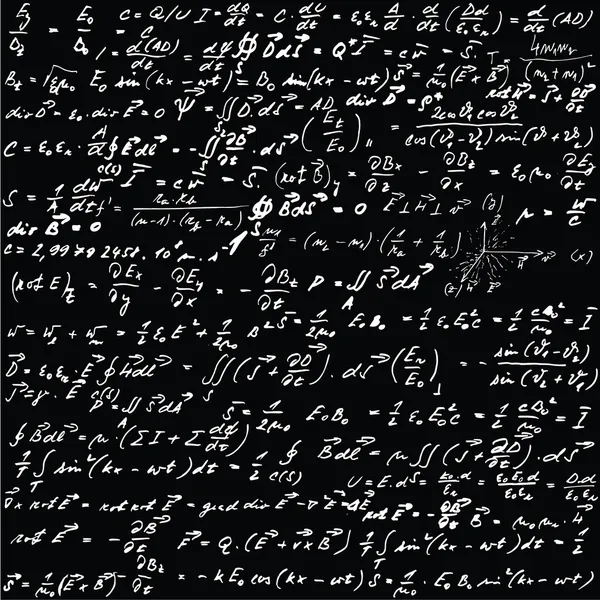 E_y/D_z = E_0/D_0 = C/C = Q/U I = dQ/dt C · dU/dt = ε_0ε_r A/d · d/dt (Dd/ε_0ε_r) = d/dt (AD)
= d(AD)/dt = dψ/dt ∯_S D⃗dS⃗ = Q* I⃗ = cw⃗ = S⃗. T = 4n_1n_2/(n_1+n_2)²
B_z = √ε_0μ_0 E_0 sin(kx − wt) = B_0 sin(kx − wt) S⃗ = 1/μ_0 (E⃗×B⃗) rot H⃗ = J⃗ + ∂D⃗/∂t
div D⃗ = ε_0 · div E⃗ = 0 Ψ = ∬D⃗.dS⃗ = AD div D⃗ = ρ* (E_t/E_0)_∥ = 2cosϑ_1 cosϑ_2/cos(ϑ_1−ϑ_2)sin(ϑ_1+ϑ_2)
C = ε_0ε_r · A/d ∮E⃗dl⃗ = −∬∂B⃗/∂t · dS⃗
S = 1/A dW/dt I⃗ = cw⃗ = S⃗. (rot B⃗)_y = ∂B_x/∂z − ∂B_z/∂x = ε_0μ_0 ∂E_y/∂t
f' = r_a·r_b/(n−1)·(r_b−r_a) ∯ B⃗dS⃗ = 0 E⃗⊥H⃗⊥v⃗ (y) n = c/v
div B⃗ = 0
c = 2,99792458.10⁸ m.s⁻¹ n_1/f' = (n_2 − n_1)·(1/r_a + 1/r_b) z⃗ v⃗ (x)
(z) H⃗ E⃗
(rot E)_z = ∂E_x/∂y − ∂E_y/∂x = −∂B_z/∂t P = ∬_A S⃗dA⃗
w = w_e + w_m = 1/2 ε_0E² + 1/2μ_0 B² S⃗ = 1/2μ_0 E_0B_0 = 1/2 ε_0E_0²c = 1/2 cB_0²/μ_0 = I⃗
D⃗ = ε_0ε_r · E⃗ ∮H⃗dl⃗ = ∬(J⃗ + ∂D⃗/∂t) · dS⃗ (E_r/E_0)_⊥ = −sin(ϑ_1−ϑ_2)/sin(ϑ_1+ϑ_2)
J⃗ = γ · E⃗ c(S) P = ∬_A S⃗dA⃗
S⃗ = 1/2μ_0 E_0B_0 = 1/2 ε_0E_0²c = 1/2 cB_0²/μ_0 = I⃗
∮B⃗dl⃗ = μ · (ΣI + Σdψ/dt)
1/T ∫_T sin²(kx − wt)dt = 1/2 ∮_c(S) B⃗dl⃗ = μ∬(J⃗ + ∂D⃗/∂t) · dS⃗
U = E.d = k_0.d/ε_r = ε_0E_0d/ε_0ε_r = D.d/ε_0ε_r
∇⃗×rot E⃗ = rot rot E⃗ = grad div E⃗ − ∇²E⃗ = −ΔE⃗ rot E⃗ = −∂B⃗/∂t B⃗ = μ_0μ_r · H⃗
rot E⃗ = −∂B⃗/∂t F⃗ = Q.(E⃗ + v⃗×B⃗) 1/T ∫_T sin²(kx − wt)dt = 1/2
S⃗ = 1/μ_0 (E⃗×B⃗) −∂B_z/∂t = −kE_0 cos(kx − wt) S = 1/μ_0 · E_0B_0 sin²(kx − wt)